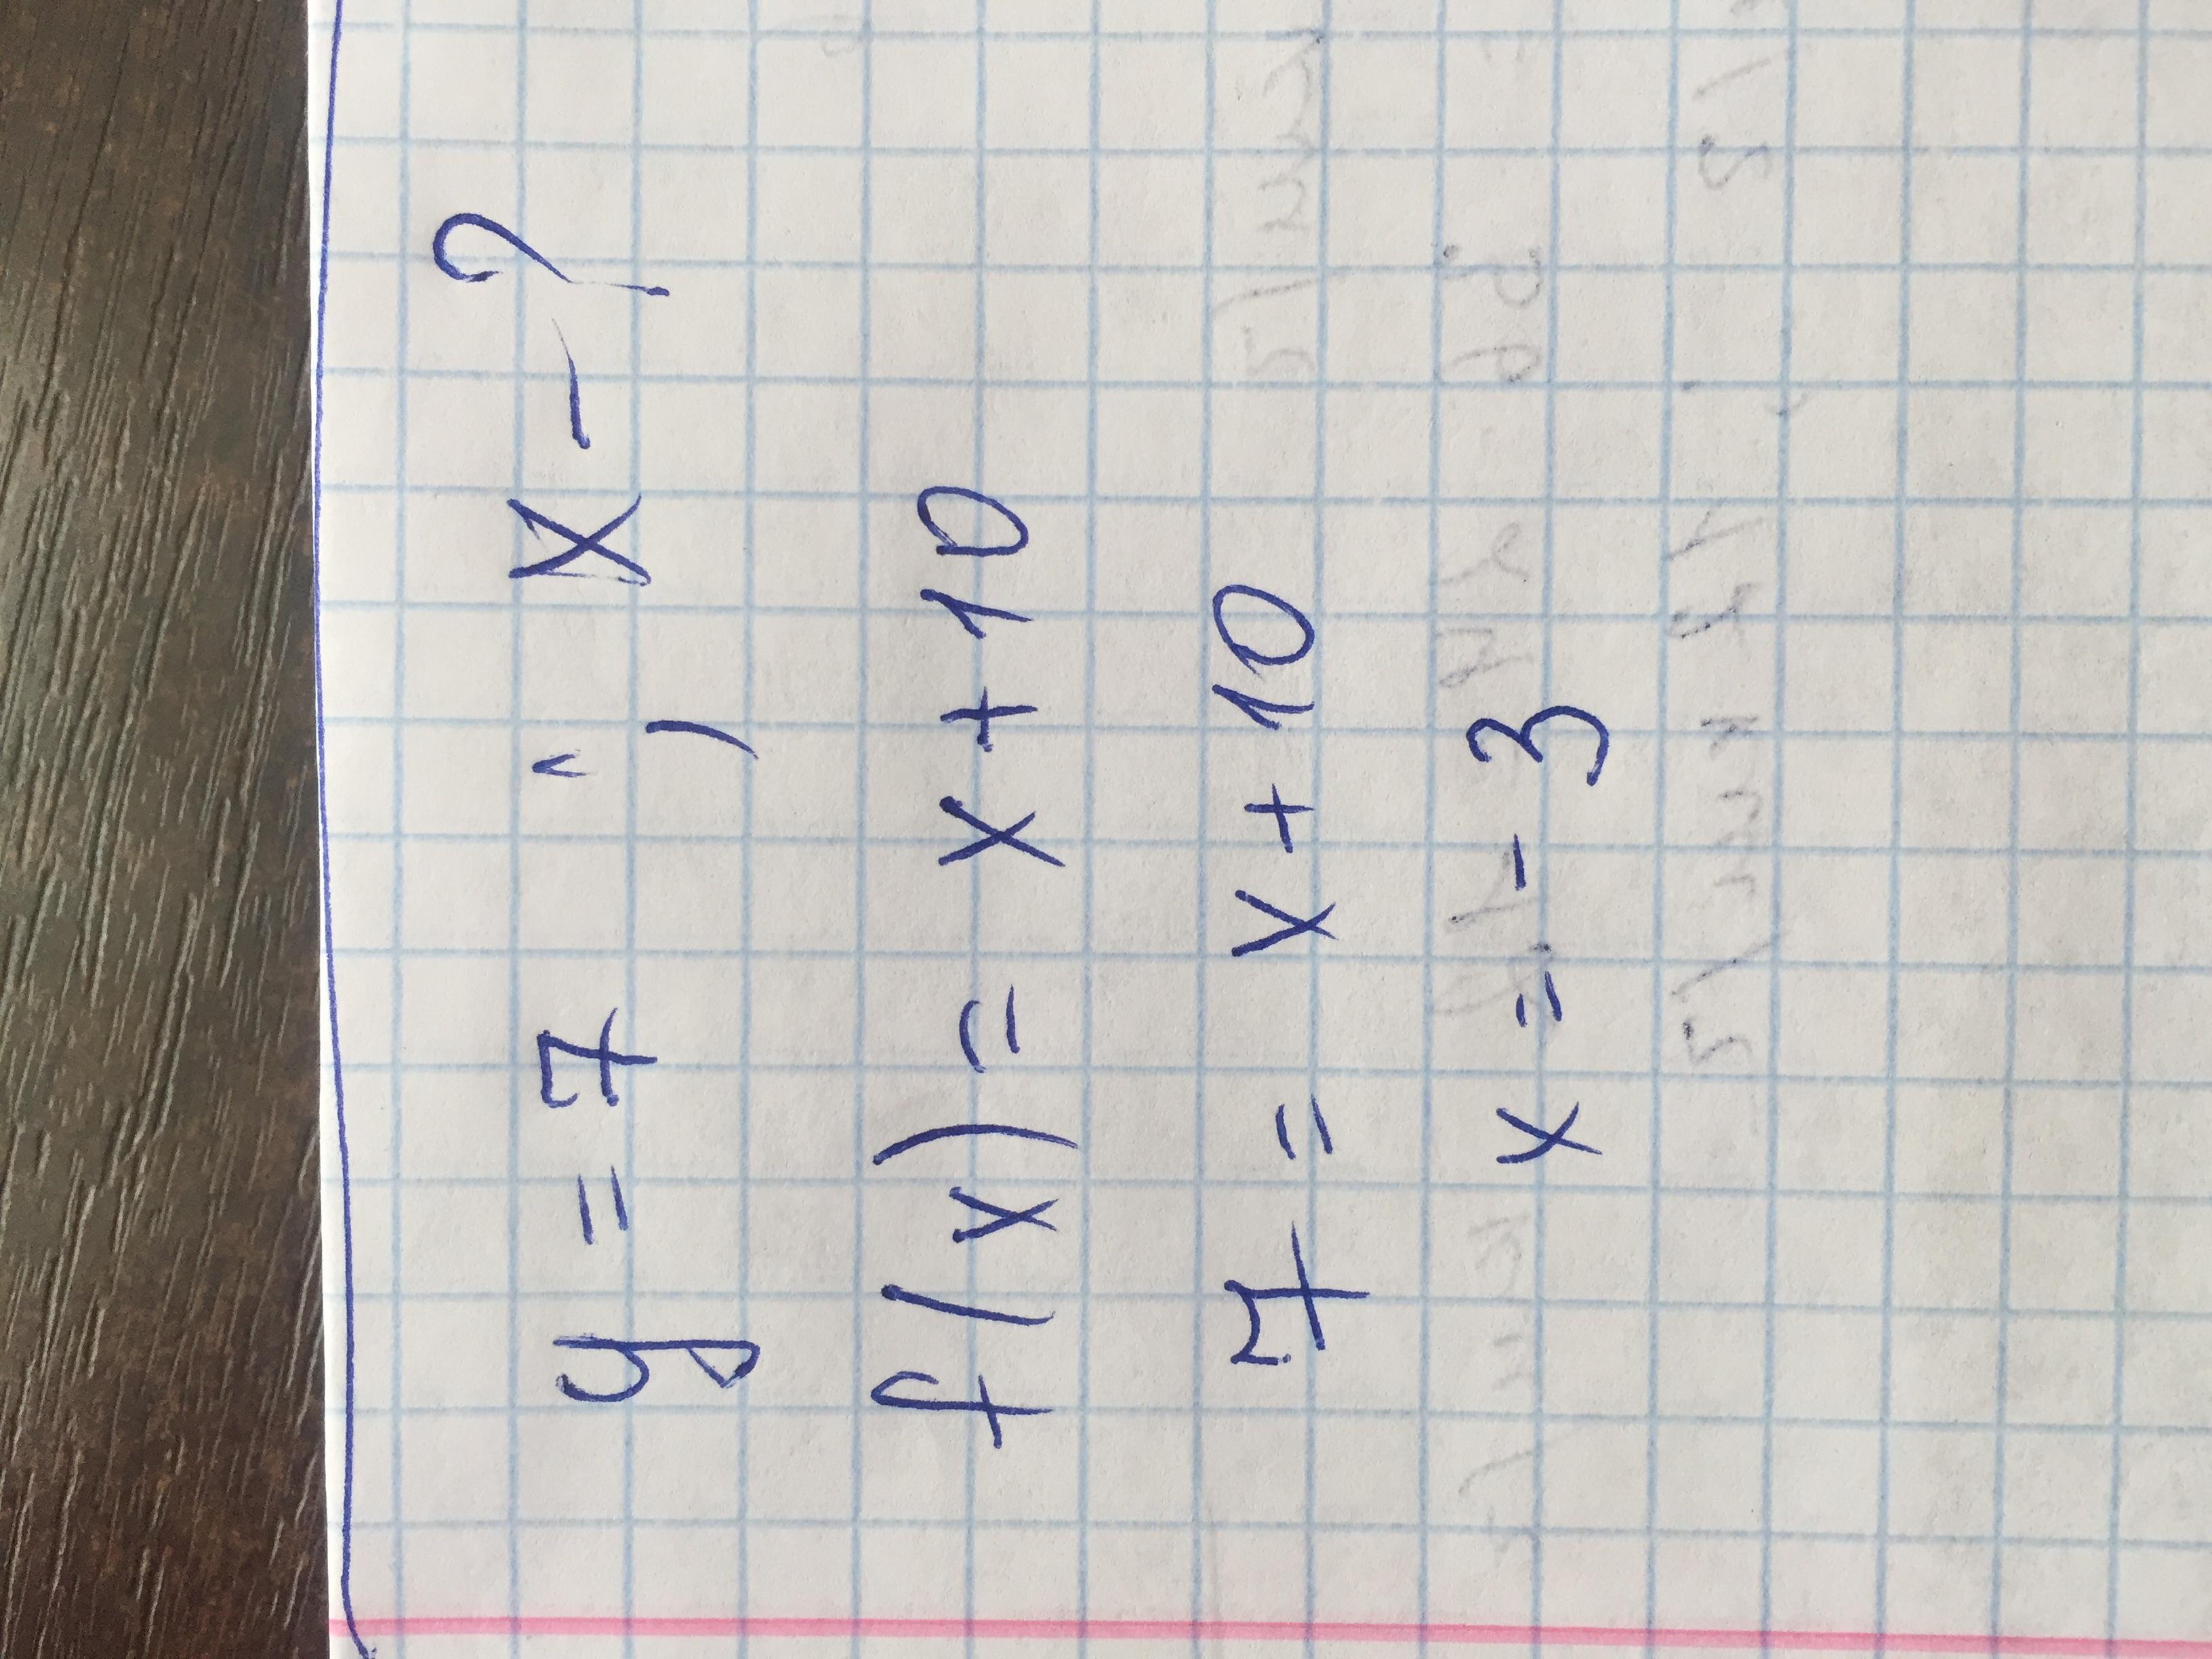 y = 7 ; x - ?
f(x) = x + 10
7 = x + 10
x = - 3